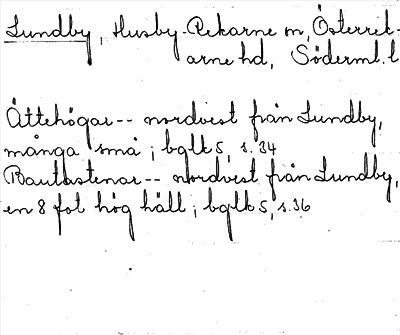 Lundby, Husby-Rekarne sn, Österrek-
arne hd, Söderml. l
Ättehögar-- nordvest från Lundby,
många små; bglk 5, s. 34
Bautastenar-- nordvest från Lundby,
en 8 fot hög häll; bglk 5, s. 36